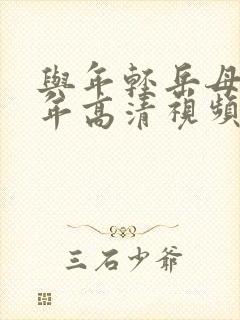 與年輕岳母
年高清視頻
三石少爺